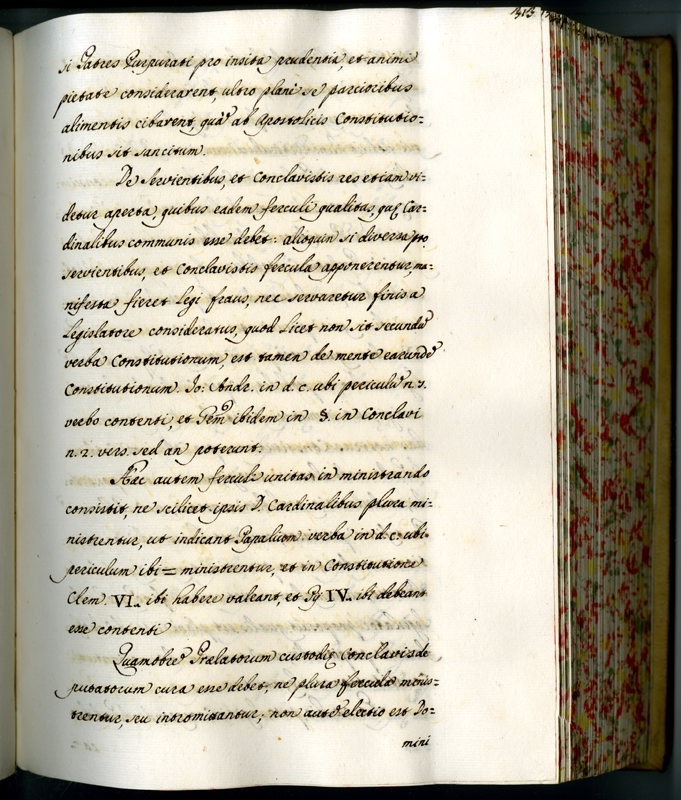 313
si Patres Purpurati pro insita prudentia, et animi
pietate considerarent, ultro plani se parcioribus
alimentis cibarent, quã ab Apostolicis Constitutio=
nibus sit sancitum.
De Servientibus, et Conclavistis res etiam vi=
detur aperta quibus eadem ferculi qualitas, quę Car=
dinalibus communis esse debet: alioquin si diversa pro
servientibus, et Conclavistis fercula apponerentur, ma=
nifesta fieret Legi fraus, nec servaretur finis a
Legislatore consideratus, quod Licet non sit secundũ
verba Constitutionum, est tamen de mente earundẽ
Constitutionum. Io: Andr. in d. c. ubi periculũ n. 7.
verbo contenti, et ibidem in §. in Conclavi
n. 2. vers. sed an poterunt.
Hæc autem ferculi unitas in ministrando
consistit, ne scilicet ipsis D. Cardinalibus plura mi=
nistrentur, ut indicant Papalium verba in d. c. ubi
periculum ibi = ministrentur, et in Constitutione
Clem. VI. ibi habere valeant, et Pij IV. ibi debeant
esse contenti
Quamobrẽ Prælatorum custodię Conclavis de
putatorum cura esse debet, ne plura fercula minis=
trentur, seu intromittantur; non autẽ electio est Do=
mini